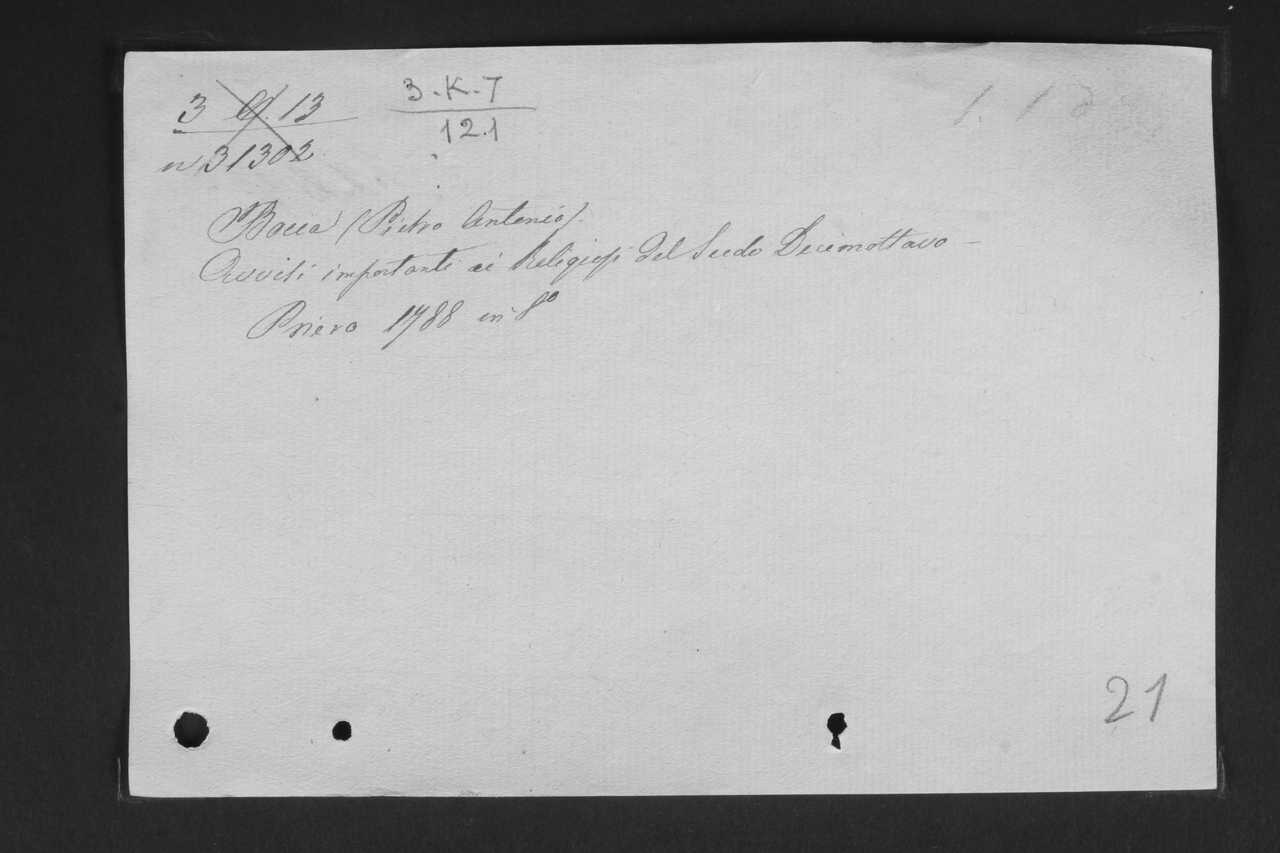 3 Q. 13
3.K.7
12.1
n 31302
Bocca (Pietro Antonio).
Avvisi importanti ai Religiosi del Secolo Decimottavo -
1788 in 8º
21